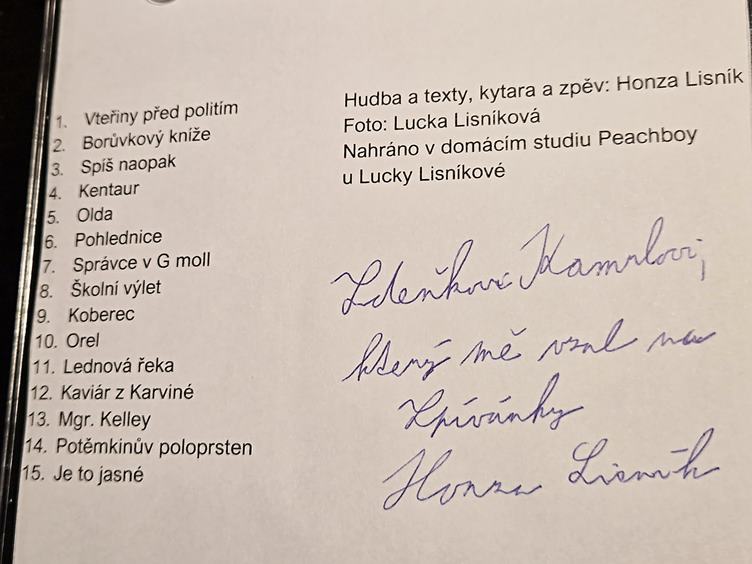 1. Vteřiny před politím
2. Borůvkový kníže
3. Spíš naopak
4. Kentaur
5. Olda
6. Pohlednice
7. Správce v G moll
8. Školní výlet
9. Koberec
10. Orel
11. Lednová řeka
12. Kaviár z Karviné
13. Mgr. Kelley
14. Potěmkinův poloprsten
15. Je to jasné
Hudba a texty, kytara a zpěv: Honza Lisník
Foto: Lucka Lisníková
Nahráno v domácím studiu Peachboy
u Lucky Lisníkové
Zdeňkovi
který mě vzal na
Zpívánky
Honza Lisník